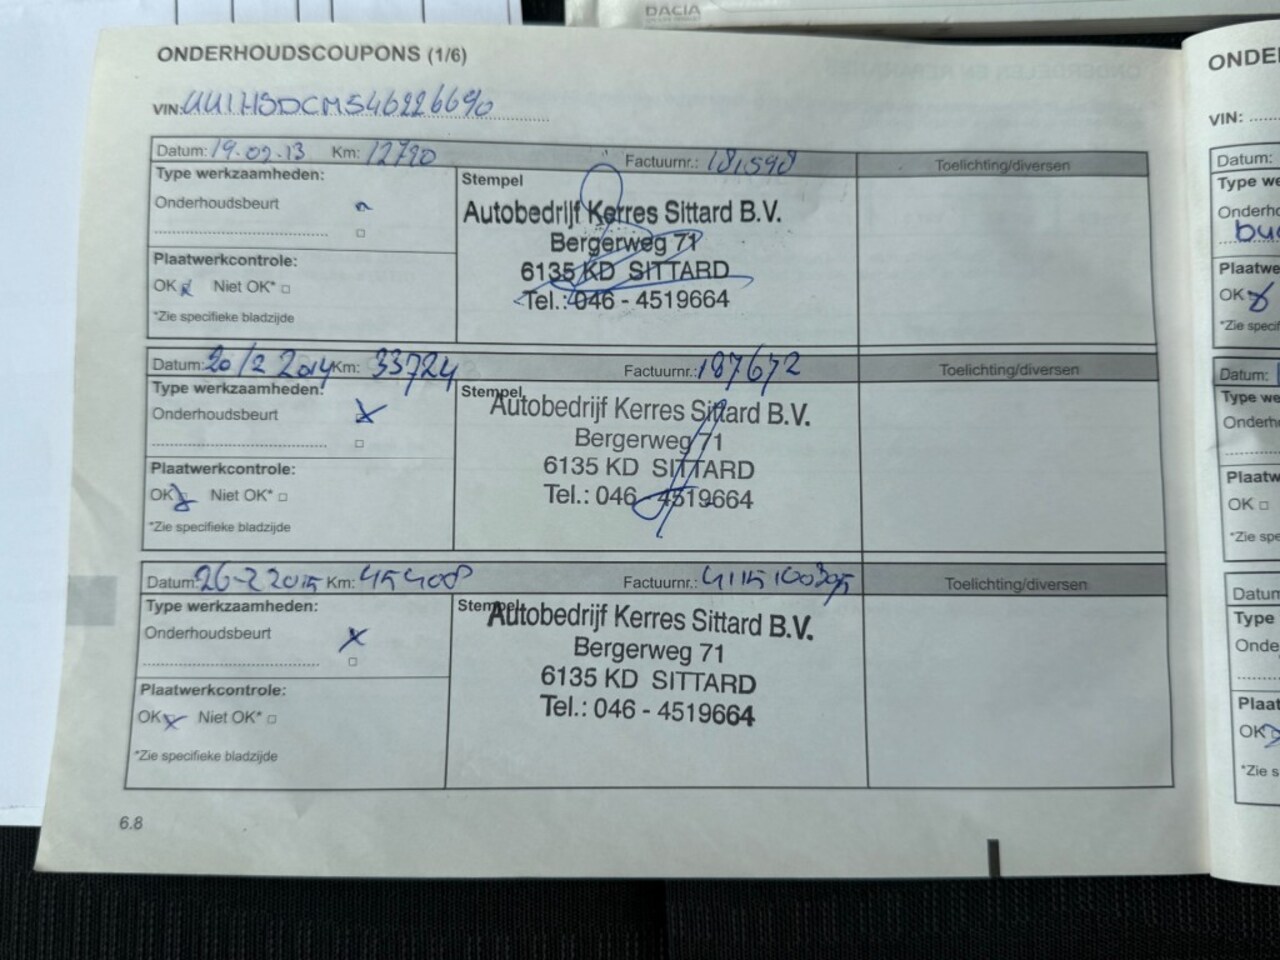 DACIA
ONDERHOUDSCOUPONS (1/6)
VIN: UU1HSDCM546226690
Datum: 19.02.13 Km: 12790 Factuurnr.: 181598 Toelichting/diversen
Type werkzaamheden:
Onderhoudsbeurt
Plaatwerkcontrole:
OK Niet OK*
*Zie specifieke bladzijde
Stempel
Autobedrijf Kerres Sittard B.V.
Bergerweg 71
6135 KD SITTARD
Tel.: 046 - 4519664
Datum: 20/2 2014 Km: 33724 Factuurnr.: 187672 Toelichting/diversen
Type werkzaamheden:
Onderhoudsbeurt
Plaatwerkcontrole:
OK Niet OK*
*Zie specifieke bladzijde
Stempel
Autobedrijf Kerres Sittard B.V.
Bergerweg 71
6135 KD SITTARD
Tel.: 046 - 4519664
Datum: 26-2 2015 Km: 45408 Factuurnr.: 4115100395 Toelichting/diversen
Type werkzaamheden:
Onderhoudsbeurt
Plaatwerkcontrole:
OK Niet OK*
*Zie specifieke bladzijde
Stempel
Autobedrijf Kerres Sittard B.V.
Bergerweg 71
6135 KD SITTARD
Tel.: 046 - 4519664
6.8
ONDE
VIN:
Datum:
Type we
Onderho
Plaatwe
OK
*Zie specif
Datum:
Type we
Onderh
Plaatw
OK
*Zie spe
Datum
Type
Onde
Plaat
OK
*Zie s